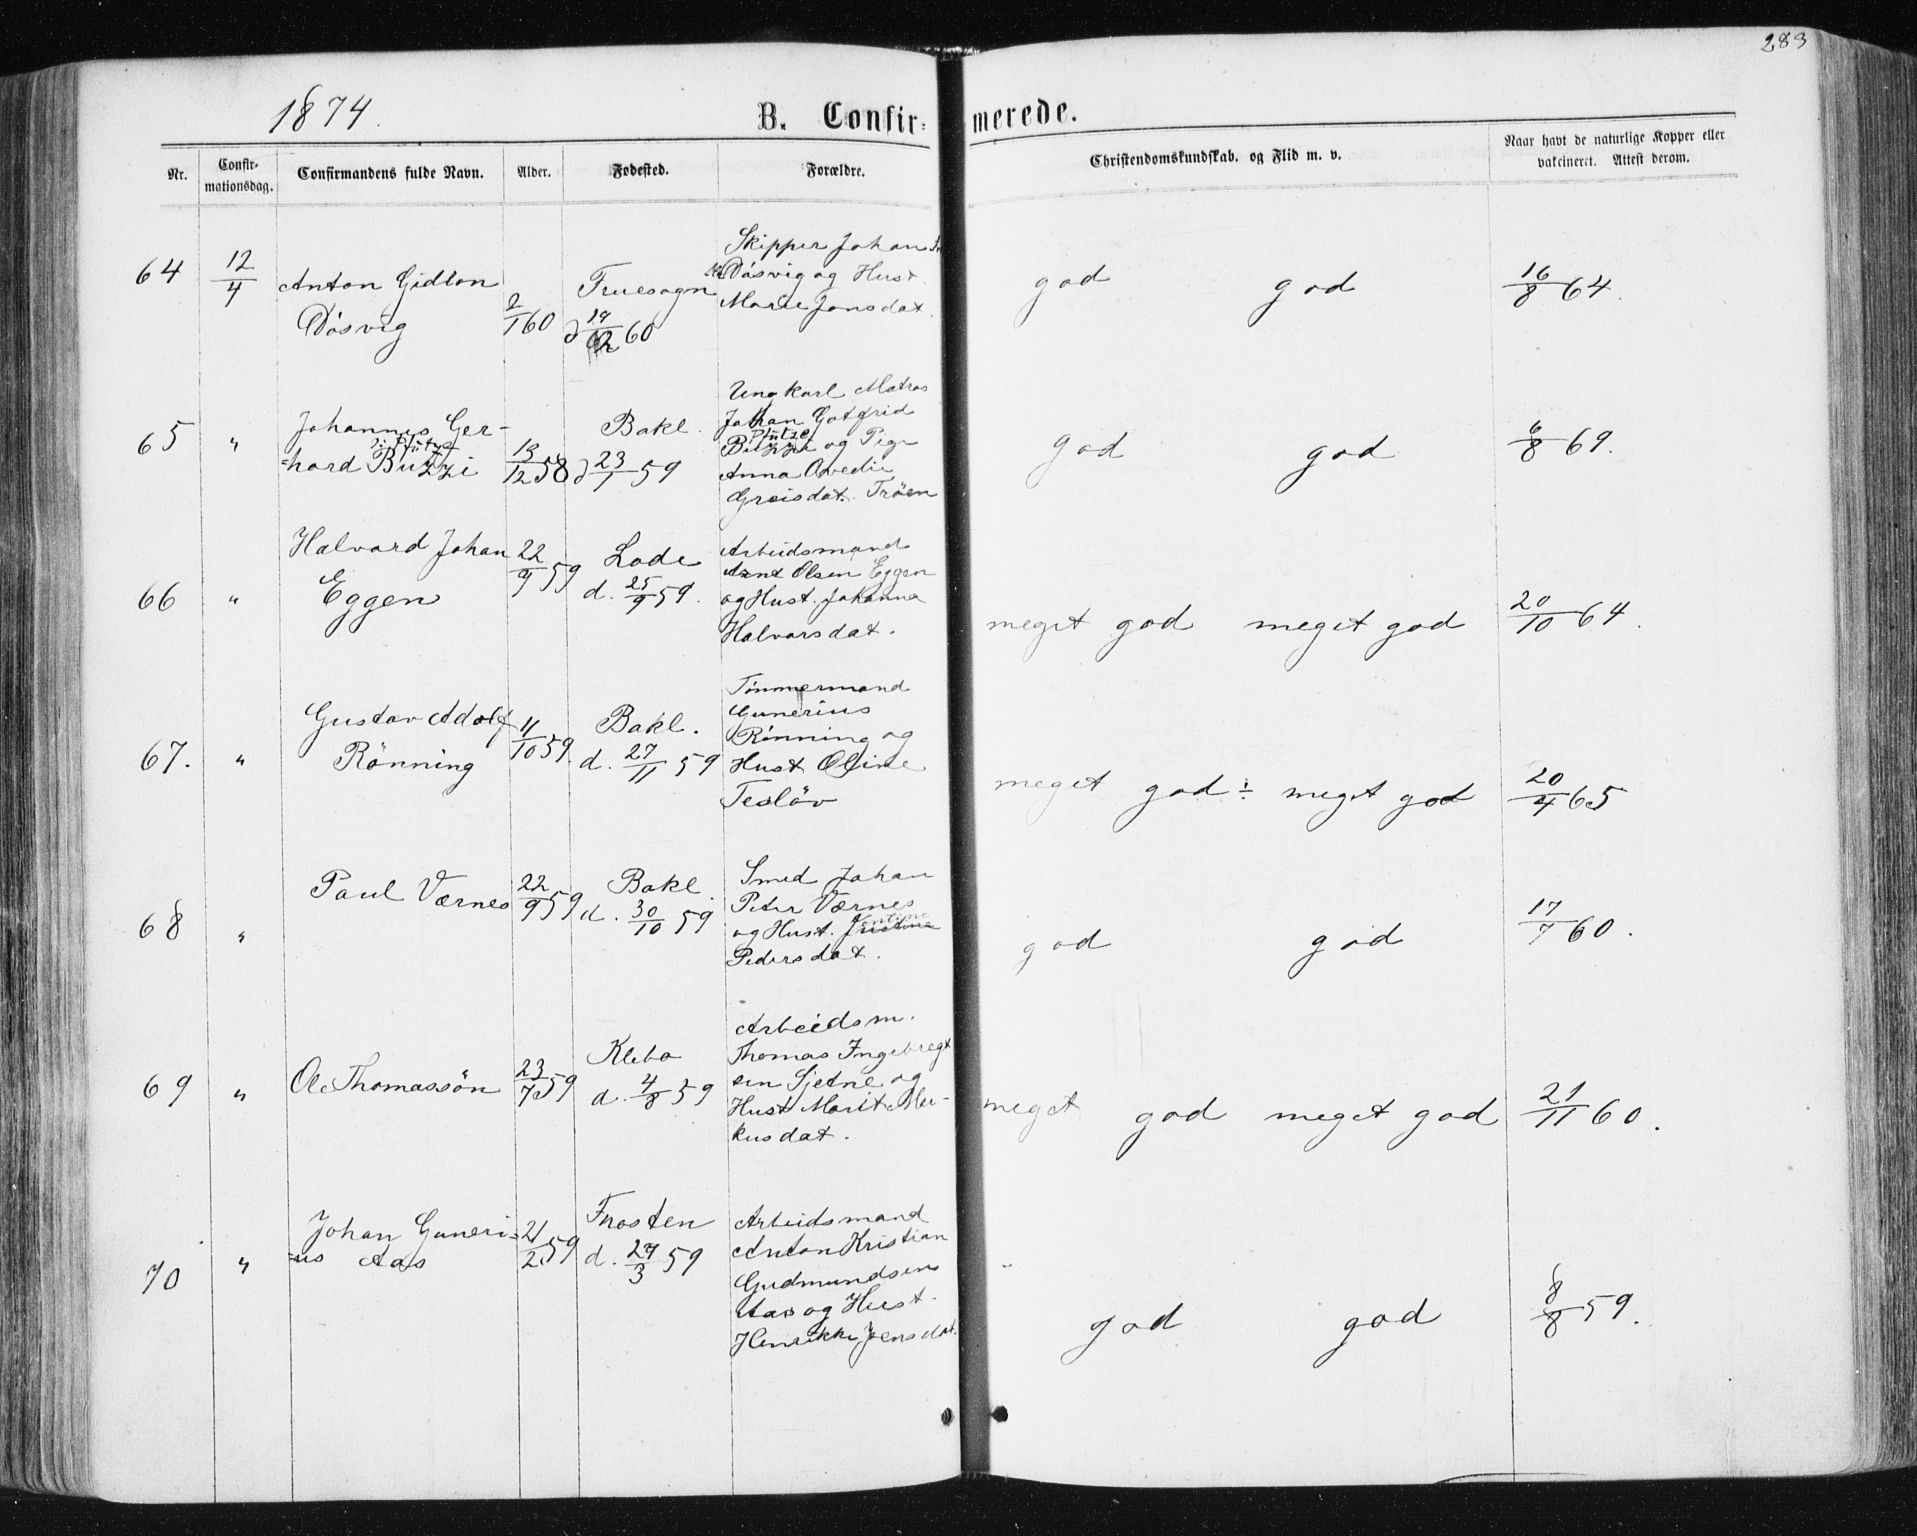 283
1874.
B. Confir-merede.
Nr.
Confir-
mationsdag.
Confirmandens fulde Navn.
Alder.
Fødested.
Forældre.
Christendomskundskab. og Flid m. v.
Naar havt de naturlige Kopper eller
vakcineret. Attest derom.
64 12/4 Anton Gidion
Døsvig
2/1 60
Fruesogn
d 19/2 60
Skipper Johan
Døsvig og Hust.
Marie Jonsdat.
god god 16/8 64.
65 " Johannes Ger-
=hard Buzzi
13/12 58
Bakl.
d 23/1 59
Ungkarl Matros
Johan Gotfrid
Pfütze
Buzzi og Pige
Anna
Greisdat. Trøen
god god 6/8 69.
66 " Halvard Johan
Eggen
22/9 59
Lade
d. 25/9 59.
Arbeidsmand
Arnt Olsen Eggen
og Hust. Johanna
Halvorsdat.
meget god meget god 20/10 64.
67. " Gustav Adolf
Rønning
11/10 59.
Bakl.
d. 27/11 59
Tømmermand
Gunerius
Rønning og
Hust Oline
Tesløv
meget god ÷ meget god 20/4 65
68 " Paul Værnes
22/9 59
Bakl.
d. 30/10 59
Smed Johan
Peter Værnes
og Hust.
Pedersdat.
god god 17/7 60.
69 " Ole Thomassøn
23/7 59
Klebo
d. 4/8 59
Arbeidsm.
Thomas Ingebregt
sen Sjetne og
Hust Marit Mar-
kusdat.
meget god meget god 21/11 60.
70 " Johan Guneri=
=us Aas
21/2 59
Frosten
d. 27/3 59
Arbeidsmand
Anton Kristian
Gudmundsen
Aas og Hust.
Henrikke Jensdat.
god god 8/8 59.